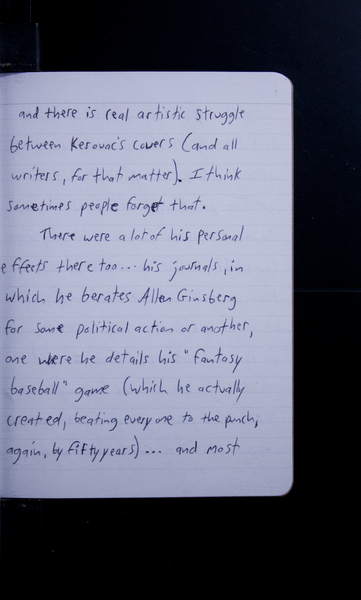 and there is real artistic struggle
between Kerouac's covers (and all
writers, for that matter). I think
sometimes people forget that.
There were a lot of his personal
effects there too... his journals, in
which he berates Allen Ginsberg
for some political action or another,
one were he details his "fantasy
baseball" game (which he actually
created, beating everyone to the punch,
again, by fifty years)... and most